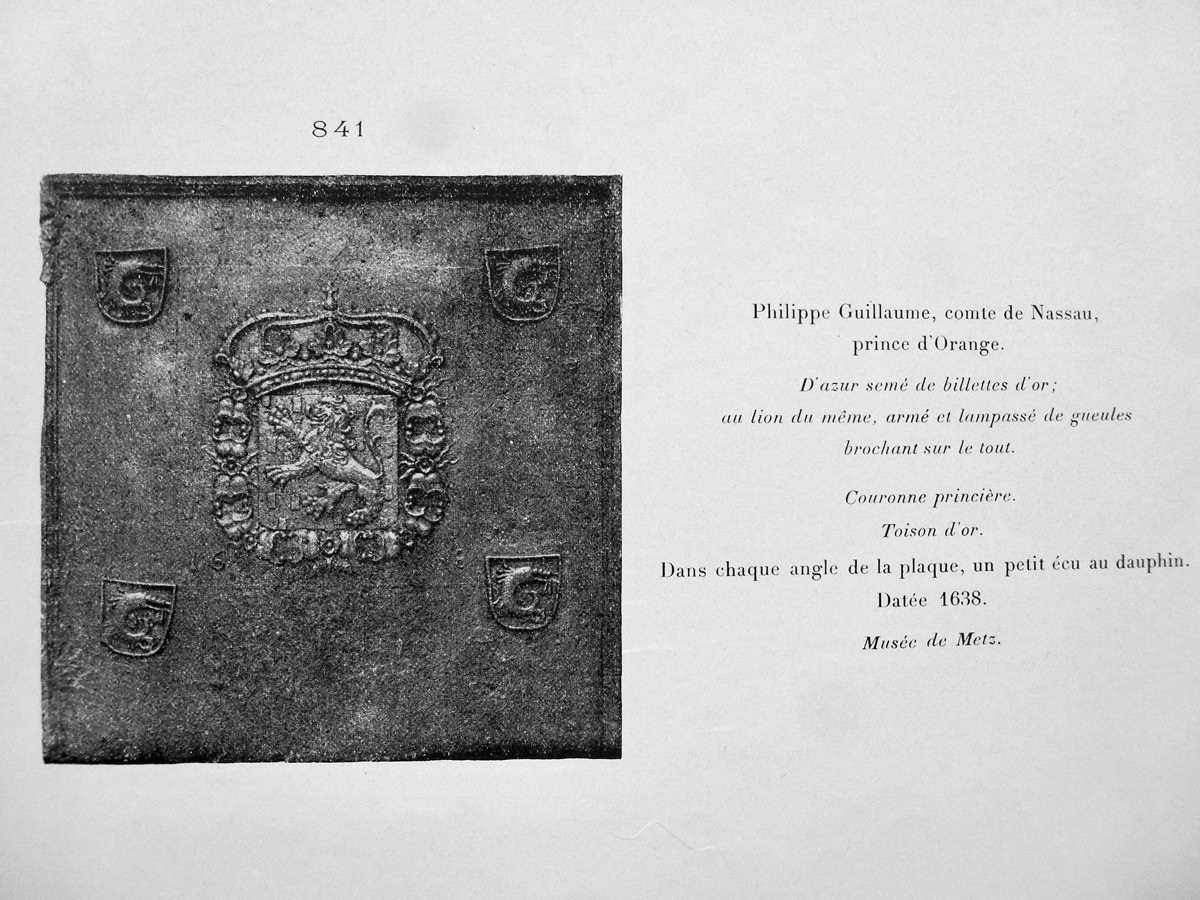 841
Philippe Guillaume, comte de Nassau,
prince d'Orange.
D'azur semé de billettes d'or;
au lion du même, armé et lampassé de gueules
brochant sur le tout.
Couronne princière.
Toison d'or.
Dans chaque angle de la plaque, un petit écu au dauphin.
Datée 1638.
Musée de Metz.